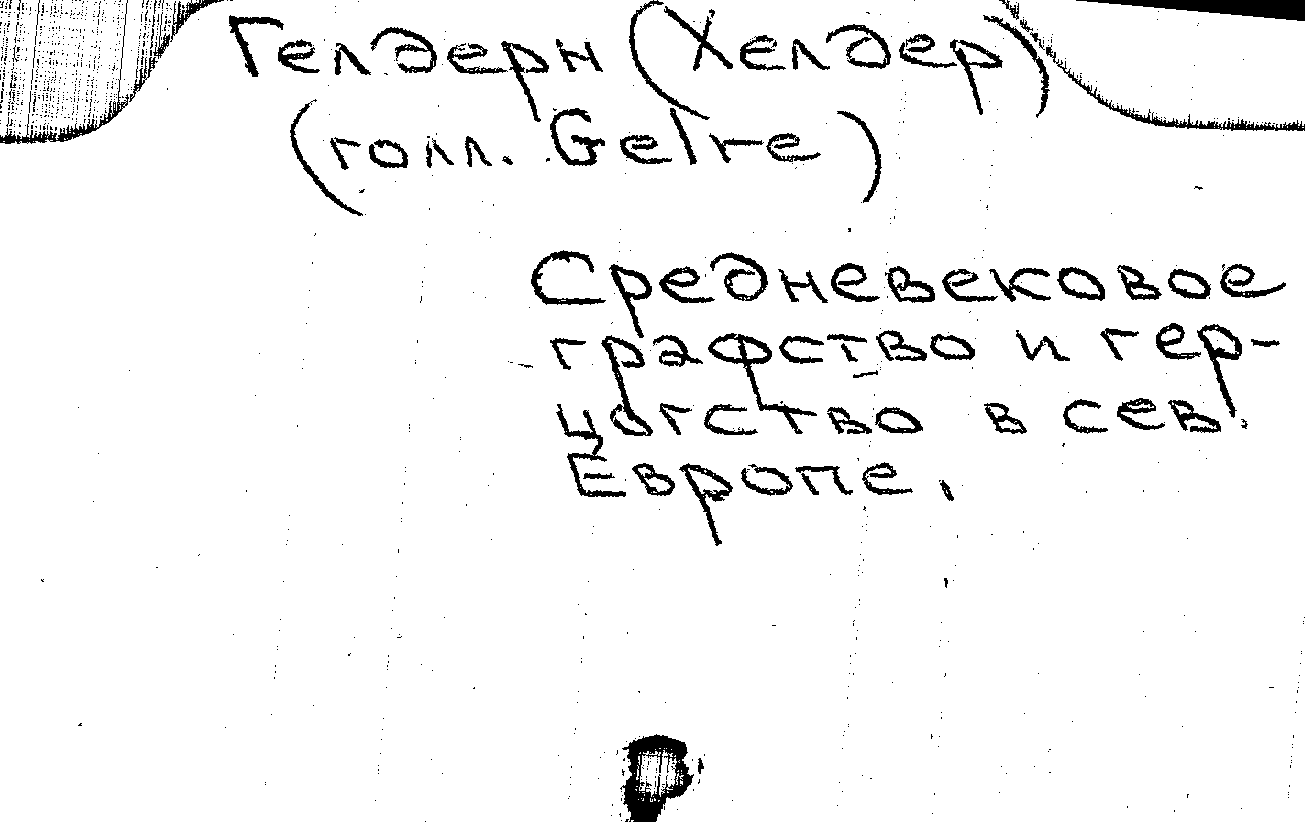 Гелдерн (Хелдер)
(голл. Gelre)
Средневековое
графство и гер-
цогство в сев.
Европе.